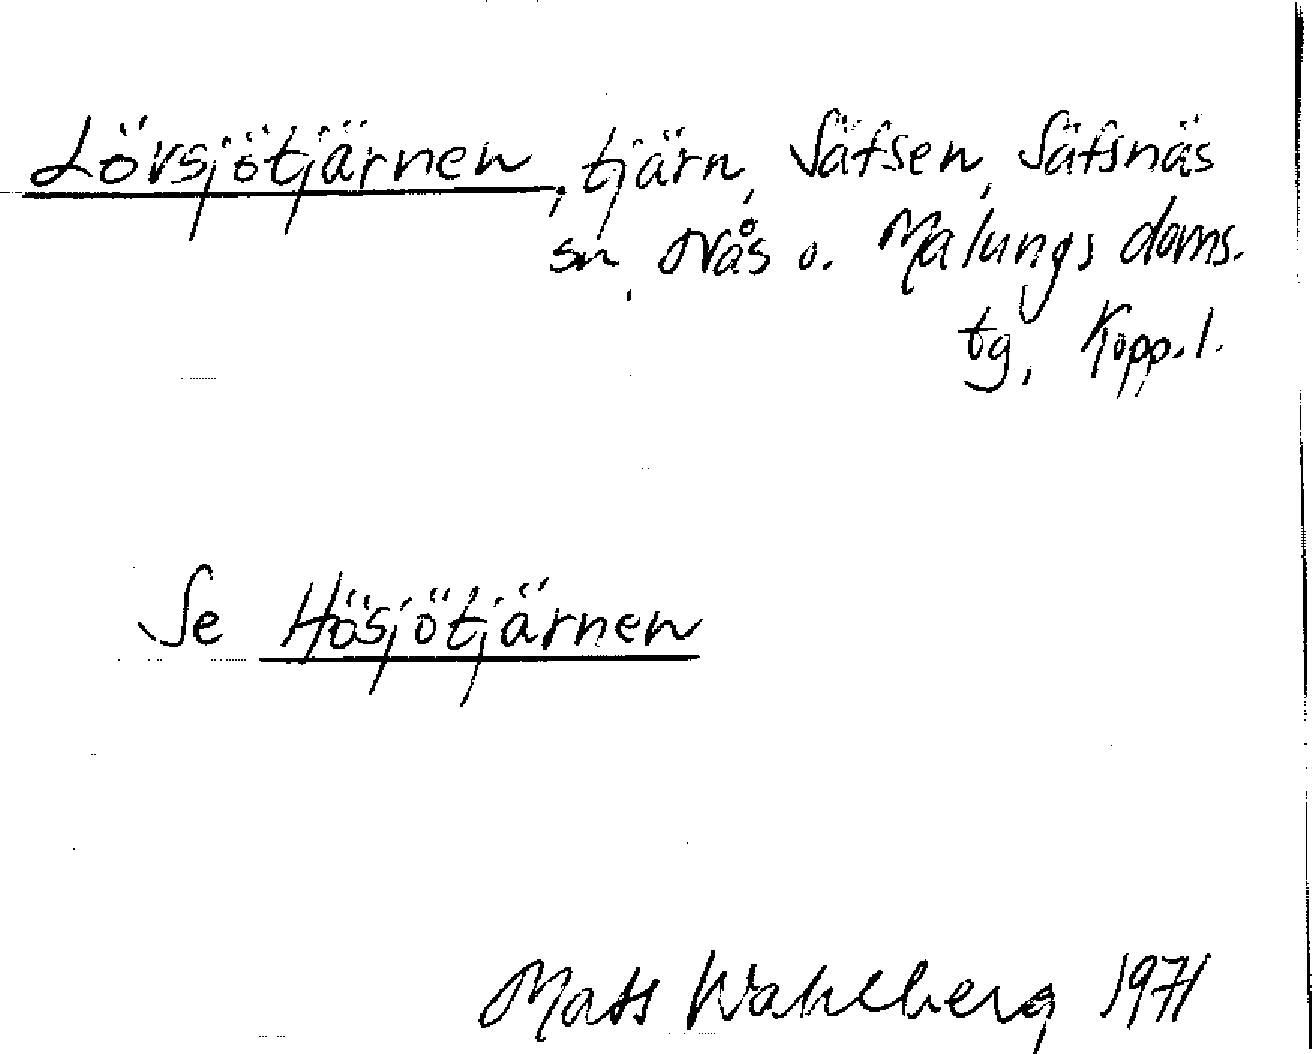 Lövsjötjärnen, tjärn, Säfsen, Säfsnäs
sn, Nås o. Malungs doms.
tg, Kopp.l.
Se Hösjötjärnen
Mats Wahlberg 1971